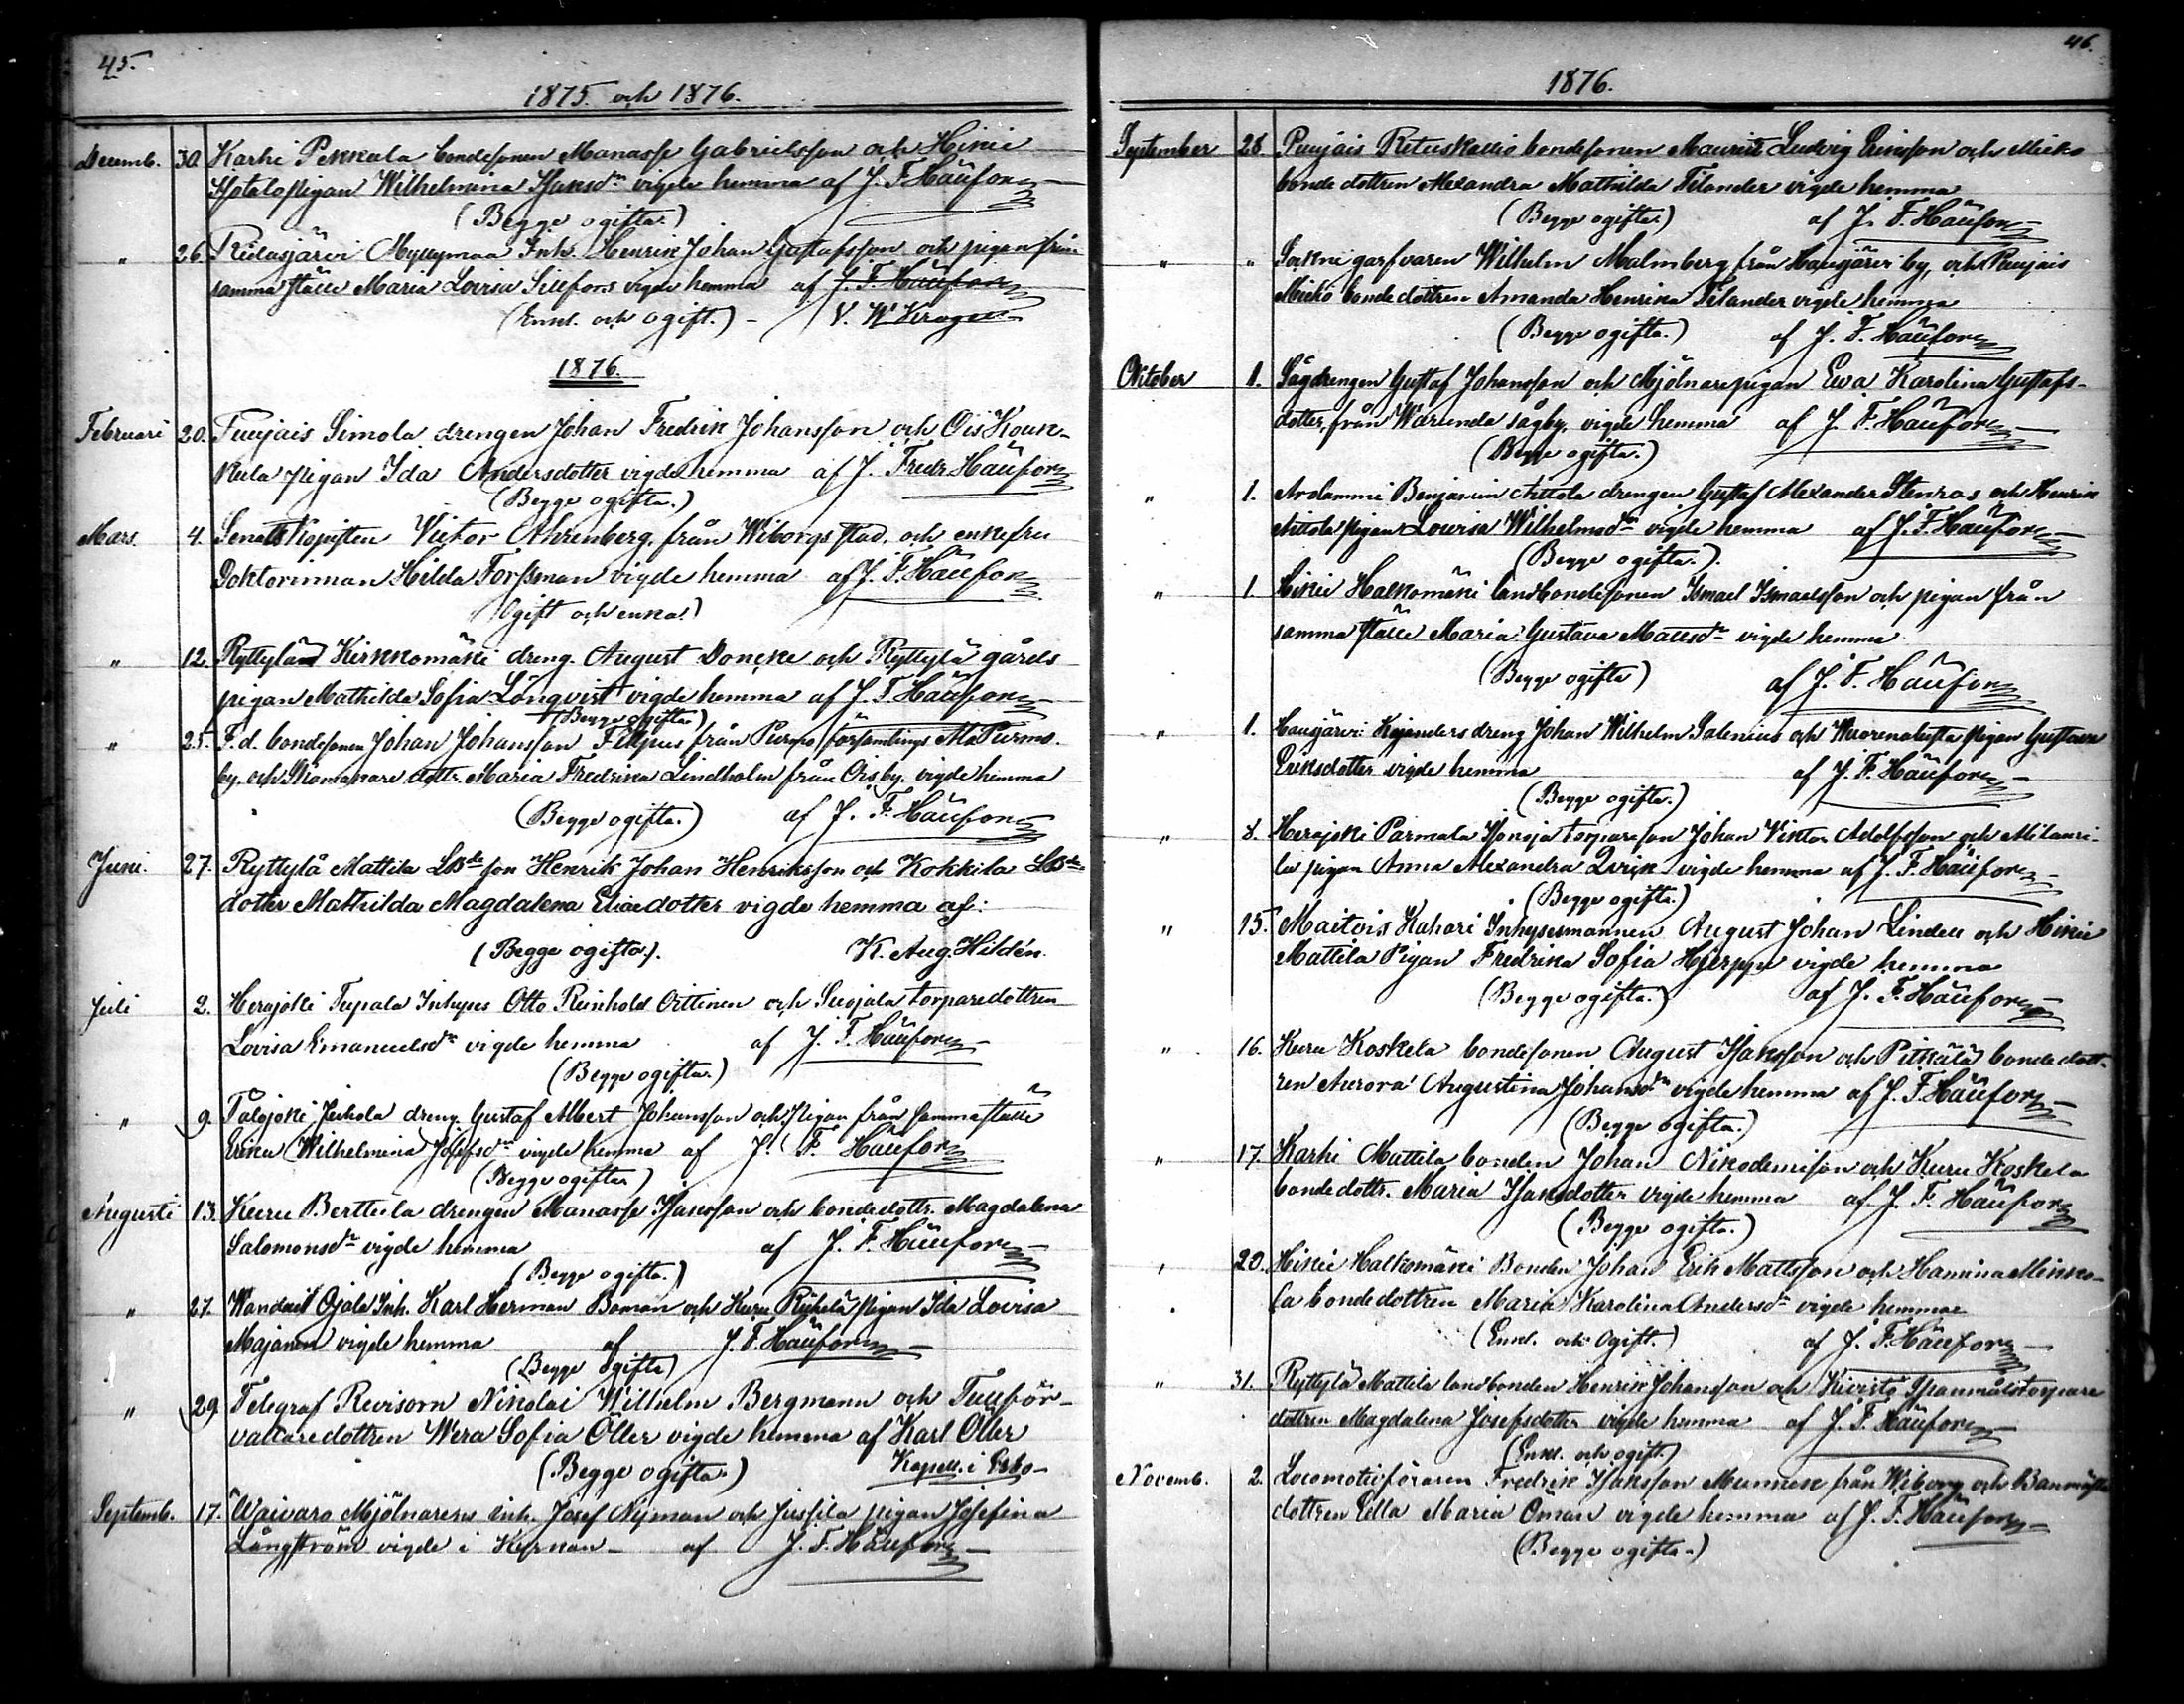 45.
1875. och 1876.
Decemb. 30. Karhi Pekkala bondesonen Manasse Gabrielsson och Hikie
Isotalo pigan Wilhelmina Isaksdr vigde hemma af J. F. Häufor
(Begge ogifta.)
" 26. Ridasjärvi Myllymaa Inh. Henrik Johan Gustafsson och pigan från
samma ställe Maria Lovisa Silfors vigde hemma af J. F. Häufor
(Enkl. och ogift.) - V. W.
1876.
Februari 20. Puujais Simola drengen Johan Fredrik Johansson och Ois Kouk-
kula pigan Ida Andersdotter vigde hemma af J. Fredr. Häufor
(Begge ogifta.)
Mars. 4. Senats Kopisten Victor Ahrenberg, från Wiborgs stad, och enkefru
Doktorinnan Hilda Forssman vigde hemma af J. F. Häufor
Ogift och enka.)
" 12. Ryttylä Kirkkomäki dreng. August Doncke och Ryttylä gårds
pigan Mathilda Sofia Lönqvist vigde hemma af J. F. Häufor
(Begge ogifta.)
" 25. F. d. bondesonen Johan Johansson Filpus från Purmo församlings Purmo
by, och Skomakare dottr. Maria Fredrika Lindholm från Ois by, vigde hemma
(Begge ogifta.) af J. F. Häufor
Juni. 27. Ryttylä Mattila LBde son Henrik Johan Henriksson och Kokkila LBde
dotter Mathilda Magdalena Eliaedotter vigde hemma af:
(Begge ogifta.). K. Aug. Hildén.
Juli 2. Herajoki Tupala Inhyses Otto Reinhold Oittinen och Suojala torparedottren
Lovisa Emanuelsdr vigde hemma af J. F. Häufor
(Begge ogifta.)
" 9. Tålojoki Jukola dreng. Gustaf Albert Johansson och pigan från samma ställe
Erika Wilhelmina Josefsdr vigde hemma af J. F. Häufor
(Begge ogifta)
Augusti 13. Kuru Berttula drengen Manasse Isaksson och bondedottr. Magdalena
Salomonsdr vigde hemma af J. F. Häufor
(Begge ogifta.)
" 27. Ojala Inh. Karl Herman Boman och Kuru Rühelä pigan Ida Lovisa
Majanen vigde hemma af J. F. Häufor
(Begge ogifta)
" 29. Telegraf Revisorn Nikolai Wilhelm Bergmann och Tullför-
valtaredottren Wera Sofia Öller vigde hemma af Karl Öller
(Begge ogifta.) Kapell. i Esbo-
Septemb. 17. Waivaro Mjölnarens inh. Josef Nyman och Jussila pigan Josefina
Långström vigde i Kyrkan - af J. F. Häufor
46.
1876.
September 28. Puujais Retuskallio bondesonen Mauritz Ludvig Ericsson och Micko
bonde dottren Alexandra Mathilda Filander vigde hemma
(Begge ogifta.) af J. F. Häufor
" " Sockne garfvaren Wilhelm Malmberg från Hausjärvi by, och Puujais
Micko bonde dottren Amanda Henrika Filander vigde hemma
(Begge ogifta.) af J. F. Häufor
Oktober 1. Sågdrengen Gustaf Johansson och Mjölnarepigan Eva Karolina Gustafs-
dotter, från Warunda sågby, vigde hemma af J. F. Häufor
(Begge ogifta.)
" 1. Arolammi Benjamin Anttola drengen Gustaf Alexander Stenroos och Henrik
Anttola pigan Lovisa Wilhelmsdr vigde hemma af J. F. Häufor
(Begge ogifta.).
" 1. Hikie Halkomäki landbondesonen Ismael Ismaelsson och pigan från
samma ställe Maria Gustava Mattsdr vigde hemma
(Begge ogifta) af J. F. Häufor
" 1. Hausjärvi Kajanders dreng Johan Wilhelm Salenius och Wuorenalusta pigan Gustava
Eriksdotter vigde hemma af J. F. Häufor
(Begge ogifta.)
" 8. Herajoki Parmala torpareson Johan Viktor Adolfsson och Milauri-
la pigan Anna Alexandra Qvick vigde hemma af J. F. Häufor
(Begge ogifta.)
" 15. Maitois Kahari Inhysesmannen August Johan Lindell och Hikie
Mattila Pigan Fredrika Sofia Hjerppe vigde hemma
(Begge ogifta.) af J. F. Häufor
" 16. Kuru Koskela bondesonen August Isaksson och Pitkälä bonde dott-
ren Aurora Augustina Johansdr vigde hemma af J. F. Häufor
(Begge ogifta.)
" 17. Karhi Mattila bonden Johan Nikodemison och Kuru Koskela
bonde dottr. Maria Isaksdotter vigde hemma af J. F. Häufor
(Begge ogifta.)
" 20. Hikie Halkomäki Bonden Johan Erik Mattsson och Hamina Minkko-
la bonde dottren Maria Karolina Andersdr vigde hemma
(Enkl. och Ogift.) af J. F. Häufor
" 31. Ryttylä Mattila landbonden Henrik Johansson och Kivistö Spanmålstorpare
dottren Magdalena Josefsdotter vigde hemma af J. F. Häufor
(Enkl. och ogift.)
Novemb. 2. Locomotivföraren Fredrik Isaksson Munnck från Wiborg och
dottren Ella Maria Öman vigde hemma af J. F. Häufor
(Begge ogifta.)